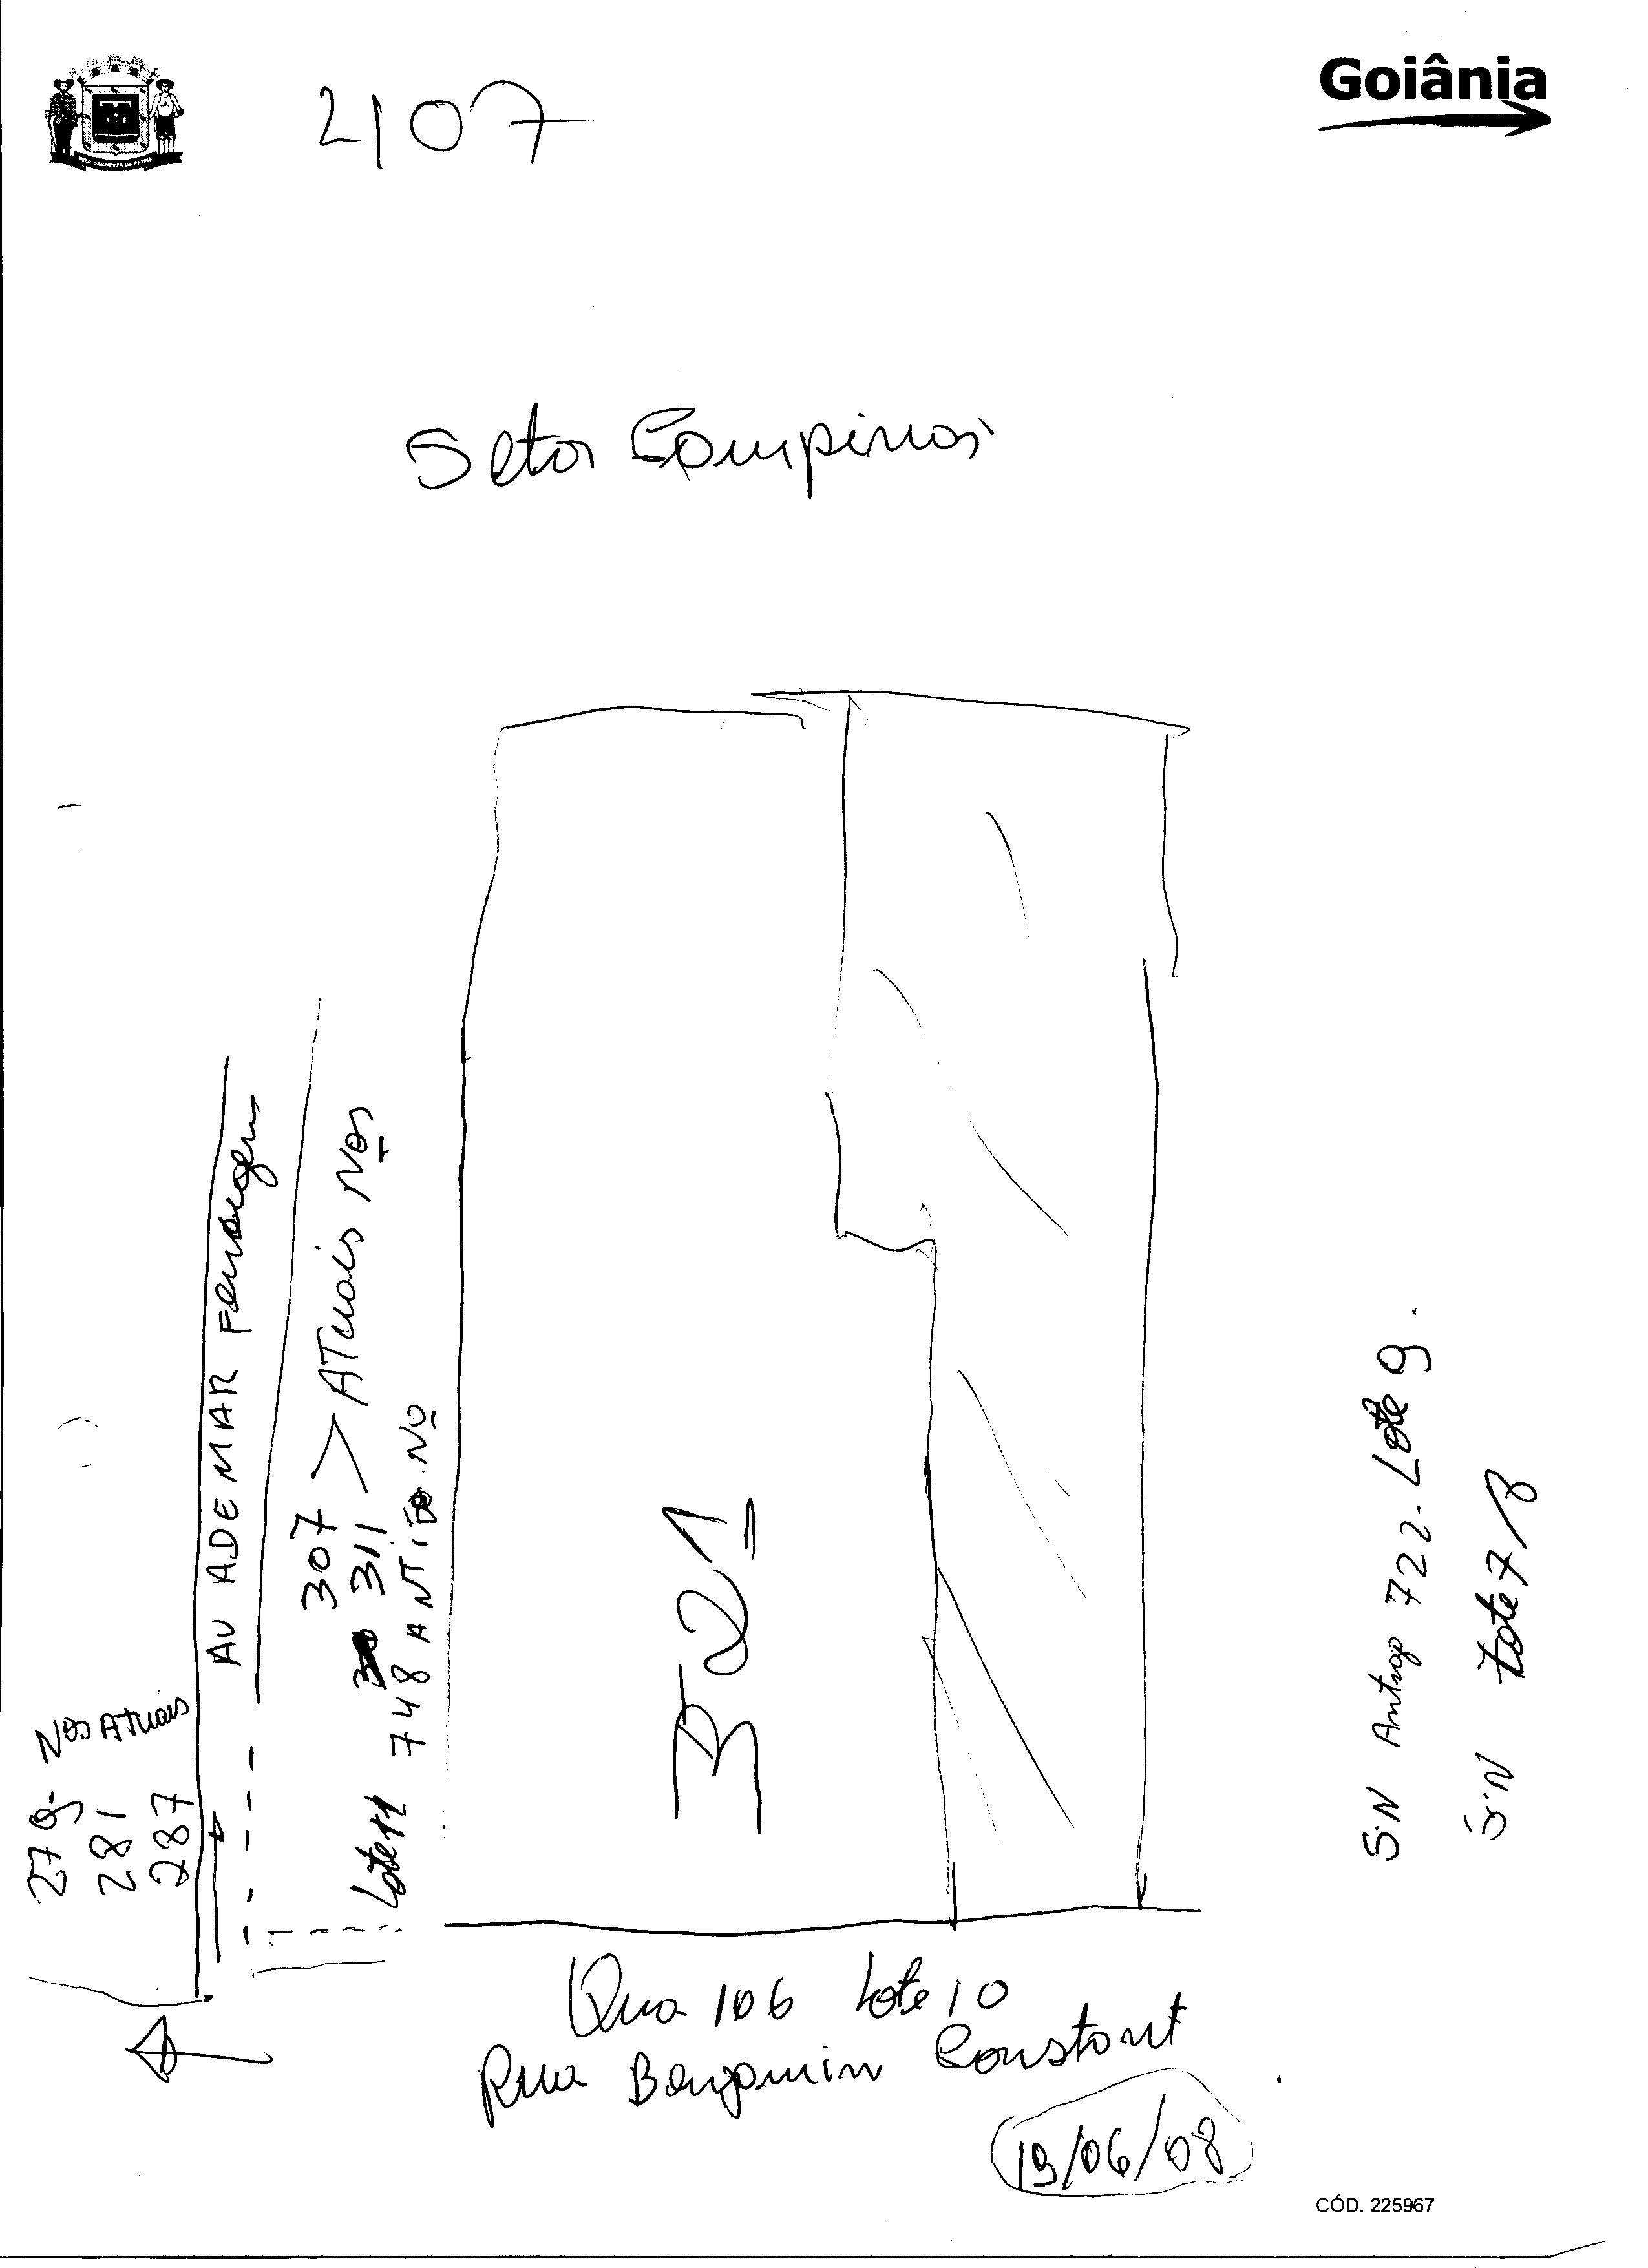 Goiânia
2107
Setor Campinas
AV ADEMAR Ferrugem
307 > ATUAIS Nos
311
Lote 11 748 ANTIGO. No
Nos ATUAIS
279
281
287
321
S.N Antigo 722 - Lote 9.
S.N Lote 7/8
Qua 106 Lote 10
Rua Benjamin Constant
19/06/08
CÓD. 225967